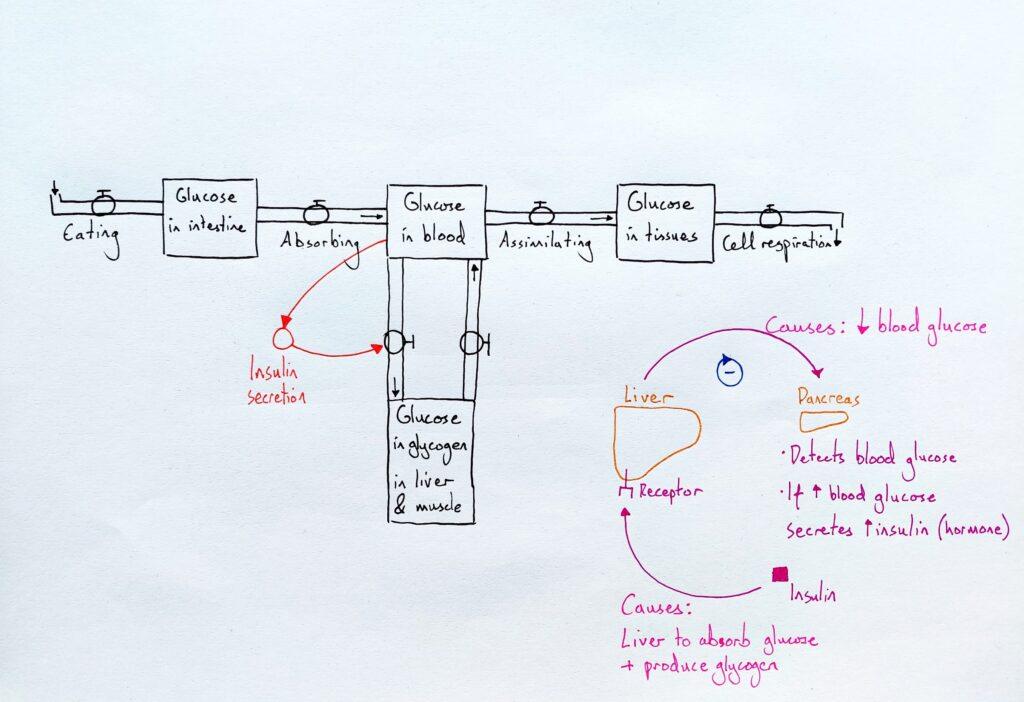 Glucose
in intestine
Glucose
in blood
Glucose
in tissues
Eating
Absorbing
Assimilating
Cell respiration
Insulin
secretion
Glucose
in glycogen
in liver
& muscle
Causes: ↓ blood glucose
−
Liver
Pancreas
Receptor
· Detects blood glucose
· If ↑ blood glucose
secretes ↑ insulin (hormone)
Insulin
Causes:
Liver to absorb glucose
+ produce glycogen